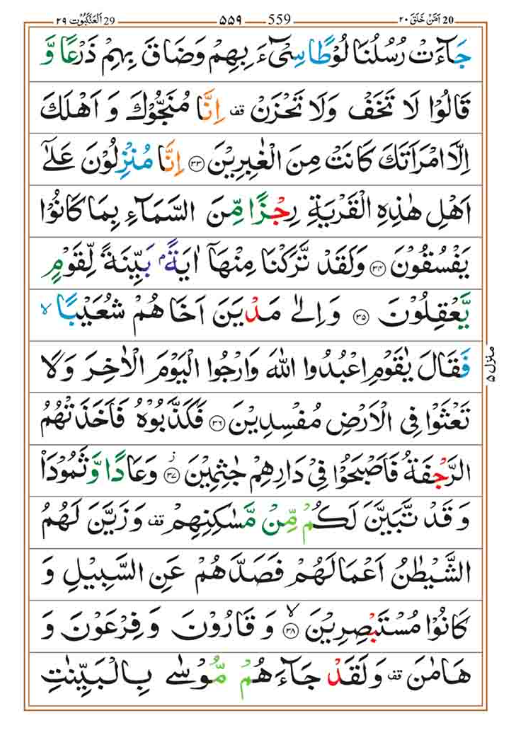 20 اَمَّنْ خَلَقَ ٢٠ 559 ٥٥٩ 29 اَلْعَنْكَبُوْت ٢٩
جَآءَتْ رُسُلُنَا لُوْطًا سِیْٓءَ بِهِمْ وَضَاقَ بِهِمْ ذَرْعًا وَّ
قَالُوْا لَا تَخَفْ وَلَا تَحْزَنْ ۫ اِنَّا مُنَجُّوْكَ وَ اَهْلَكَ
اِلَّا امْرَاَتَكَ كَانَتْ مِنَ الْغٰبِرِیْنَ ۝۳۳ اِنَّا مُنْزِلُوْنَ عَلٰۤی
اَهْلِ هٰذِهِ الْقَرْیَةِ رِجْزًا مِّنَ السَّمَآءِ بِمَا كَانُوْا
یَفْسُقُوْنَ ۝۳۴ وَلَقَدْ تَّرَكْنَا مِنْهَاۤ اٰیَةًۢ بَیِّنَةً لِّقَوْمٍ
یَّعْقِلُوْنَ ۝۳۵ وَاِلٰی مَدْیَنَ اَخَاهُمْ شُعَیْبًا ۙ
فَقَالَ یٰقَوْمِ اعْبُدُوا اللّٰهَ وَارْجُوا الْیَوْمَ الْاٰخِرَ وَلَا
تَعْثَوْا فِی الْاَرْضِ مُفْسِدِیْنَ ۝۳۶ فَكَذَّبُوْهُ فَاَخَذَتْهُمُ
الرَّجْفَةُ فَاَصْبَحُوْا فِیْ دَارِهِمْ جٰثِمِیْنَ ۝۳۷ؗ وَعَادًا وَّثَمُوْدَا۠
وَ قَدْ تَّبَیَّنَ لَكُمْ مِّنْ مَّسٰكِنِهِمْ ۫ وَ زَیَّنَ لَهُمُ
الشَّیْطٰنُ اَعْمَالَهُمْ فَصَدَّهُمْ عَنِ السَّبِیْلِ وَ
كَانُوْا مُسْتَبْصِرِیْنَ ۝۳۸ۙ وَ قَارُوْنَ وَ فِرْعَوْنَ وَ
هَامٰنَ ۫ وَلَقَدْ جَآءَهُمْ مُّوْسٰی بِالْبَیِّنٰتِ
منزل ۵